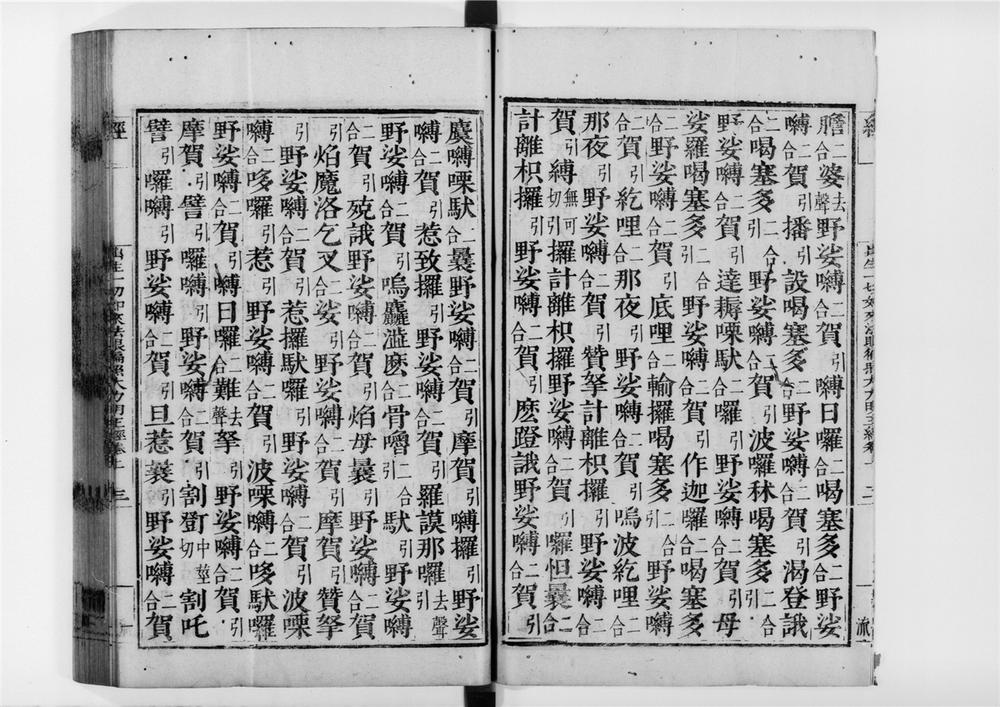 膽二合婆去聲野娑嚩二合賀引嚩日囉二合喝塞多二合野娑
嚩二合賀引播引設喝塞多二合野娑嚩二合賀引渴登誐
二合喝塞多引二合野娑嚩二合賀引波囉秫喝塞多引二合
野娑嚩二合賀引達耨㗚馱二合囉引野娑嚩二合賀引母
娑羅喝塞多引二合野娑嚩二合賀引作迦囉二合喝塞多
引二合野娑嚩二合賀引底哩二合輸攞喝塞多引二合野娑嚩
二合賀引紇哩二合那夜引野娑嚩二合賀引嗚波紇哩二合
那夜引野娑嚩二合賀引贊拏計離枳攞引野娑嚩二合
賀引縛無可切引攞計離枳攞野娑嚩二合賀引囉怛曩二合
計離枳攞引野娑嚩二合賀引麽蹬誐野娑嚩二合賀引
曩嚩㗚馱二合曩野娑嚩二合賀引摩賀引嚩攞引野娑
嚩二合賀引惹致攞引野娑嚩二合賀引羅謨那囉去聲引
野娑嚩二合賀引嗚麤澁麽二合骨嚕引二合馱引野娑嚩
二合賀引兢誐野娑嚩二合賀引焰母曩引野娑嚩二合賀
引焰魔洛乞叉二合娑引野娑嚩二合賀引摩賀引贊拏
引野娑嚩二合賀引惹攞馱囉引野娑嚩二合賀引波㗚
嚩二合哆囉引惹引野娑嚩二合賀引波㗚嚩二合哆馱囉
野娑嚩二合賀引嚩日囉二合難去聲拏引野娑嚩二合賀引
摩賀引譬引囉嚩引野娑嚩二合賀引割㲉中莖切割吒
譬引囉嚩引野娑嚩二合賀引旦惹曩引野娑嚩二合賀